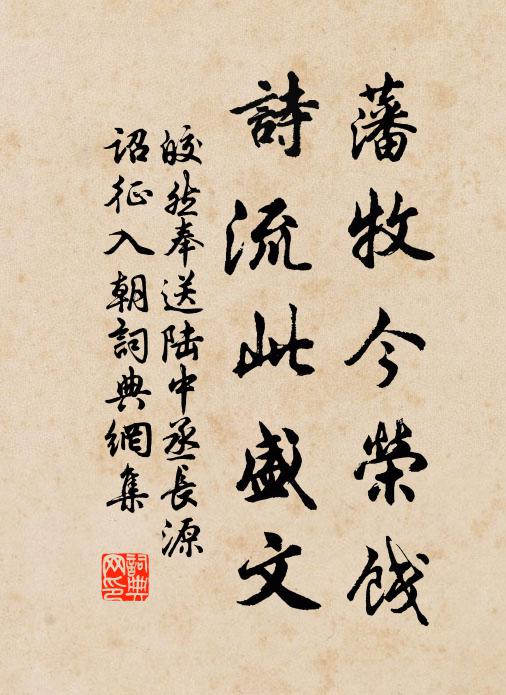 藩牧今榮餞
詩流此盛文
皎然奉送陸中丞長源
詔征入朝詞典網集
詞典网印